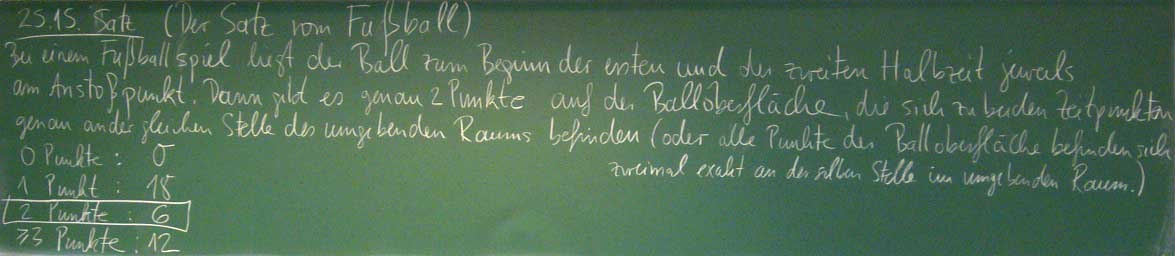 25.15. Satz (Der Satz vom Fußball)
Bei einem Fußballspiel liegt der Ball zum Beginn der ersten und der zweiten Halbzeit jeweils
am Anstoßpunkt. Dann gibt es genau 2 Punkte auf der Balloberfläche, die sich zu beiden Zeitpunkten
genau an der gleichen Stelle des umgebenden Raums befinden (oder alle Punkte der Balloberfläche befinden sich
zweimal exakt an derselben Stelle im umgebenden Raum.)
0 Punkte: 0
1 Punkt: 18
2 Punkte: 6
≥3 Punkte: 12